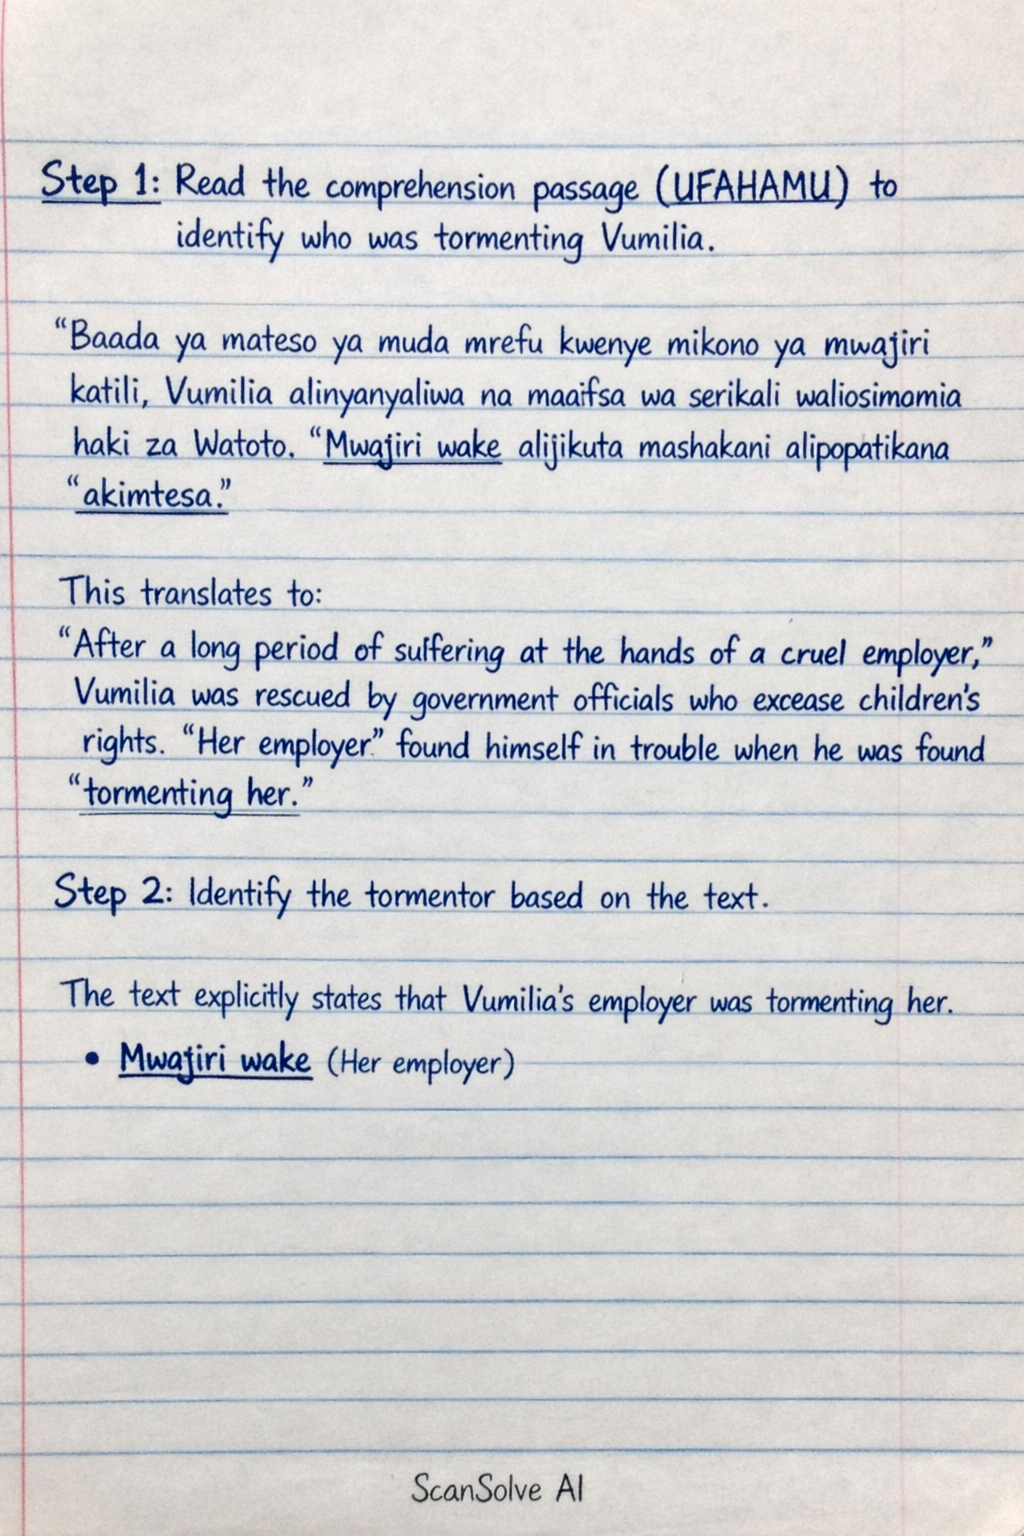 Step 1: Read the comprehension passage (UFAHAMU) to
identify who was tormenting Vumilia.
"Baada ya mateso ya muda mrefu kwenye mikono ya mwajiri
katili, Vumilia alinyanyaliwa na maaifsa wa serikali waliosimomia
haki za Watoto. "Mwajiri wake alijikuta mashakani alipopatikana
"akimtesa."
This translates to:
"After a long period of suffering at the hands of a cruel employer,"
Vumilia was rescued by government officials who excease children's
rights. "Her employer." found himself in trouble when he was found
"tormenting her."
Step 2: Identify the tormentor based on the text.
The text explicitly states that Vumilia's employer was tormenting her.
• Mwajiri wake (Her employer)
ScanSolve AI